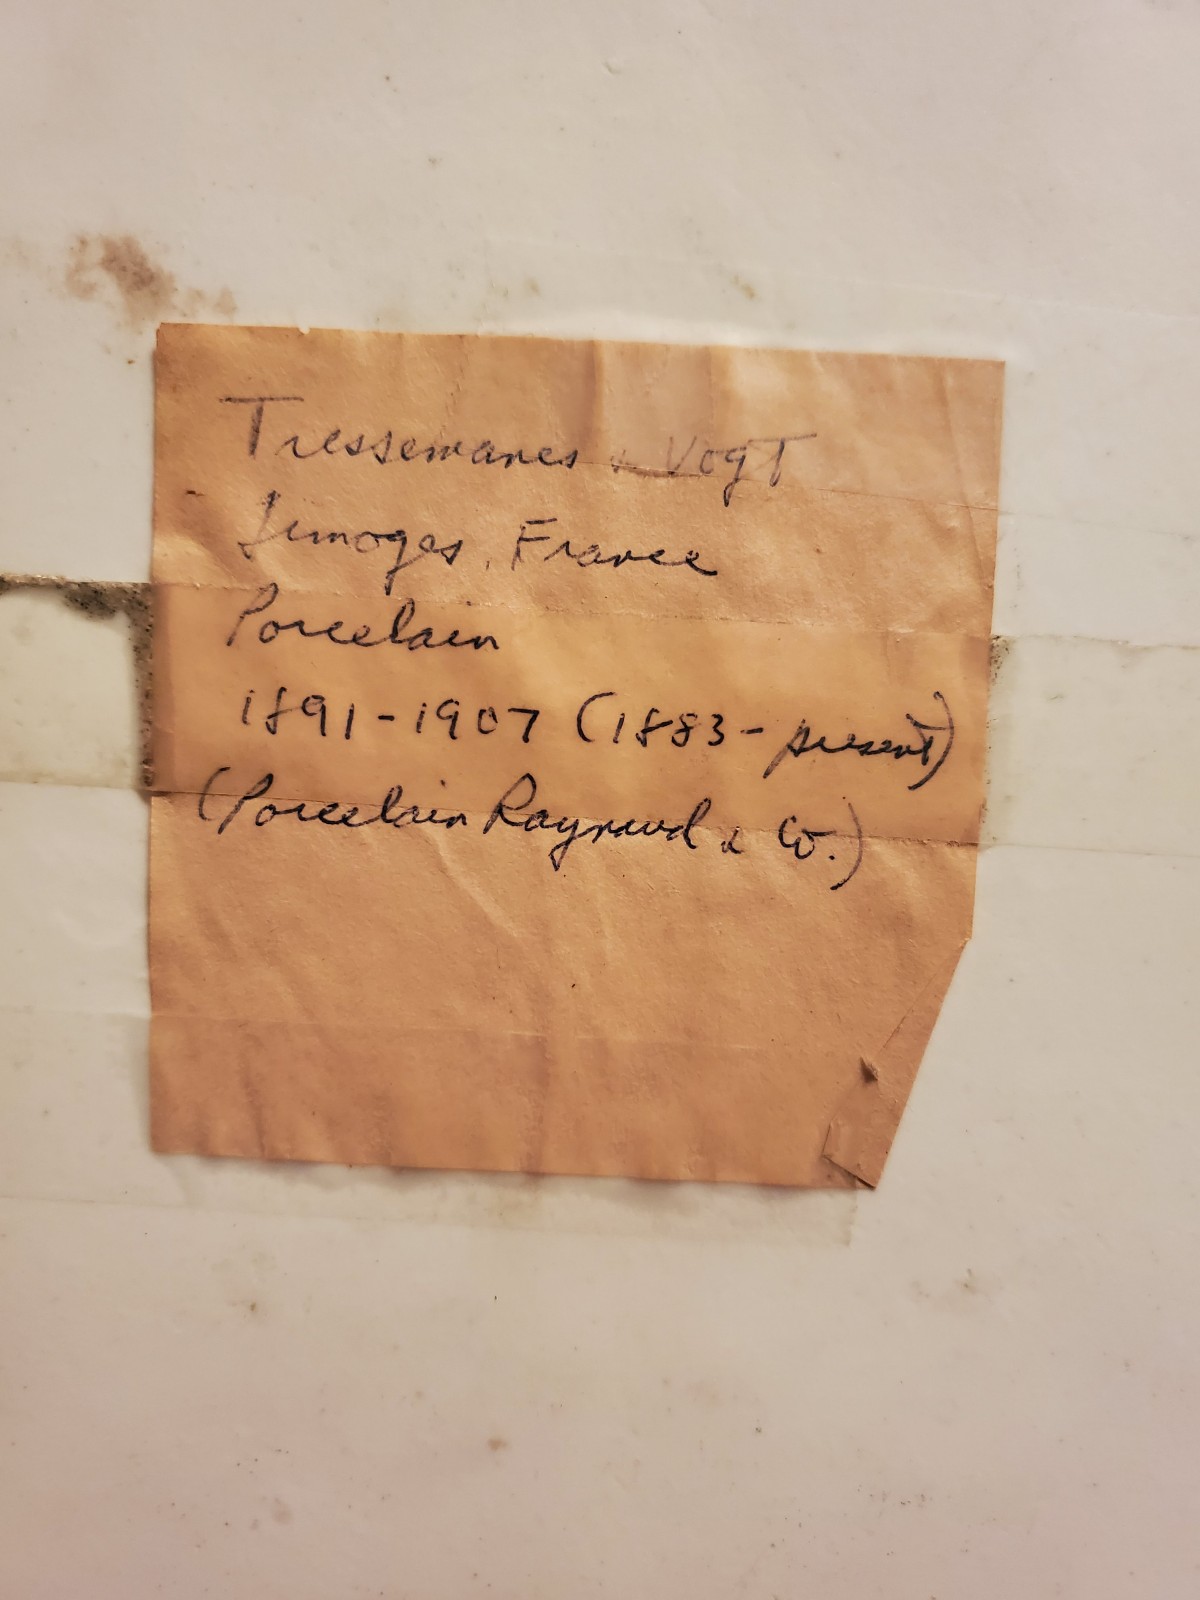 Tressemanes & Vogt
Limoges, France
Porcelain
1891-1907 (1883-present)
(Porcelain Raynaud & Co.)